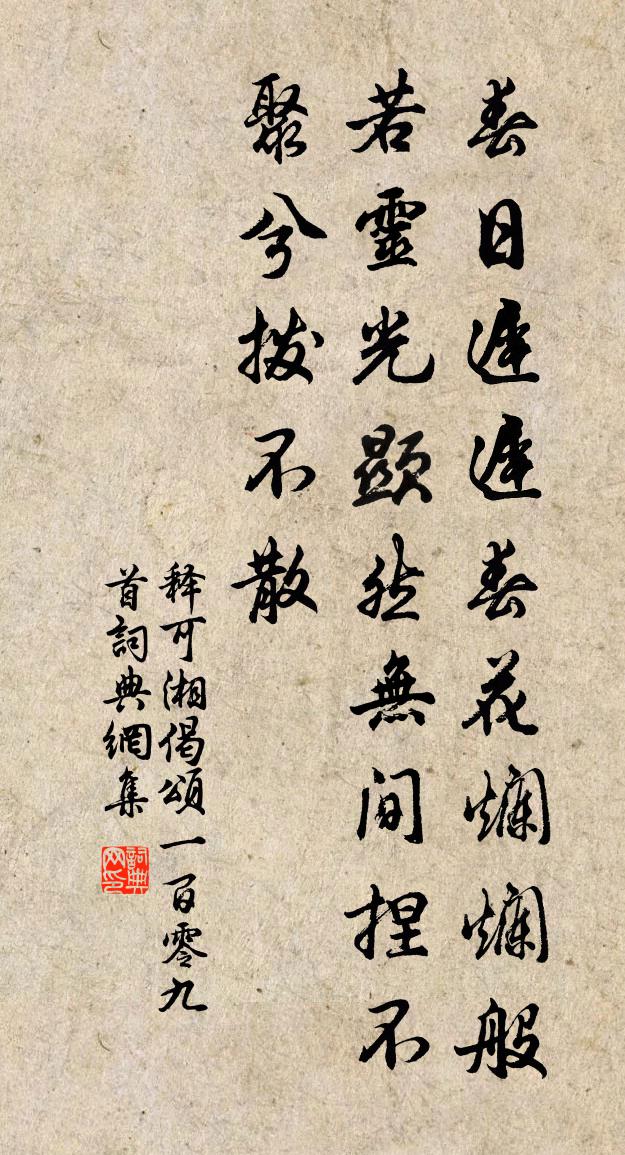 春日遲遲春花爛爛般
若靈光顯然無間捏不
聚兮撥不散
釋可湘偈頌一百零九
首詞典網集
詞典
网印